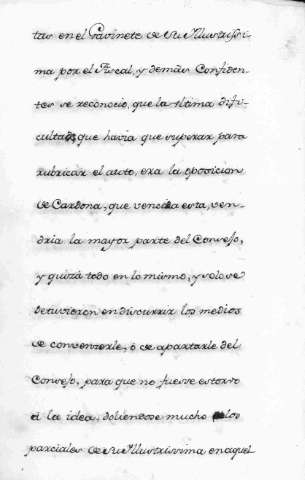 tas en el Gavinete de Su Illustrissi-
ma por el Fiscal, y demàs Confiden-
tes se reconocio, que la ultima difi-
cultad, que havia que superar para
rubricar el auto, era la oposicion
de Cardona, que vencida esta, ven-
dria la mayor parte del Consejo,
y quizà todo en lo mismo, y solo se
detuvieron en discurrir los medios
de convencerle, ò de apartarle del
Consejo, para que no fuese estorvo
à la idea, doliendose mucho los
parciales de Su Illustrissima en aquel